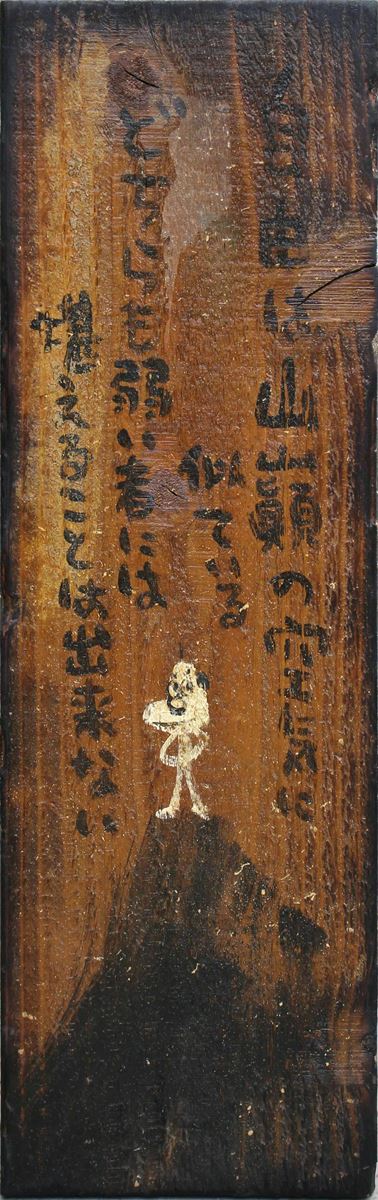 自由は山巓の空気に
似ている
どちらも弱い者には
堪えることは出来ない